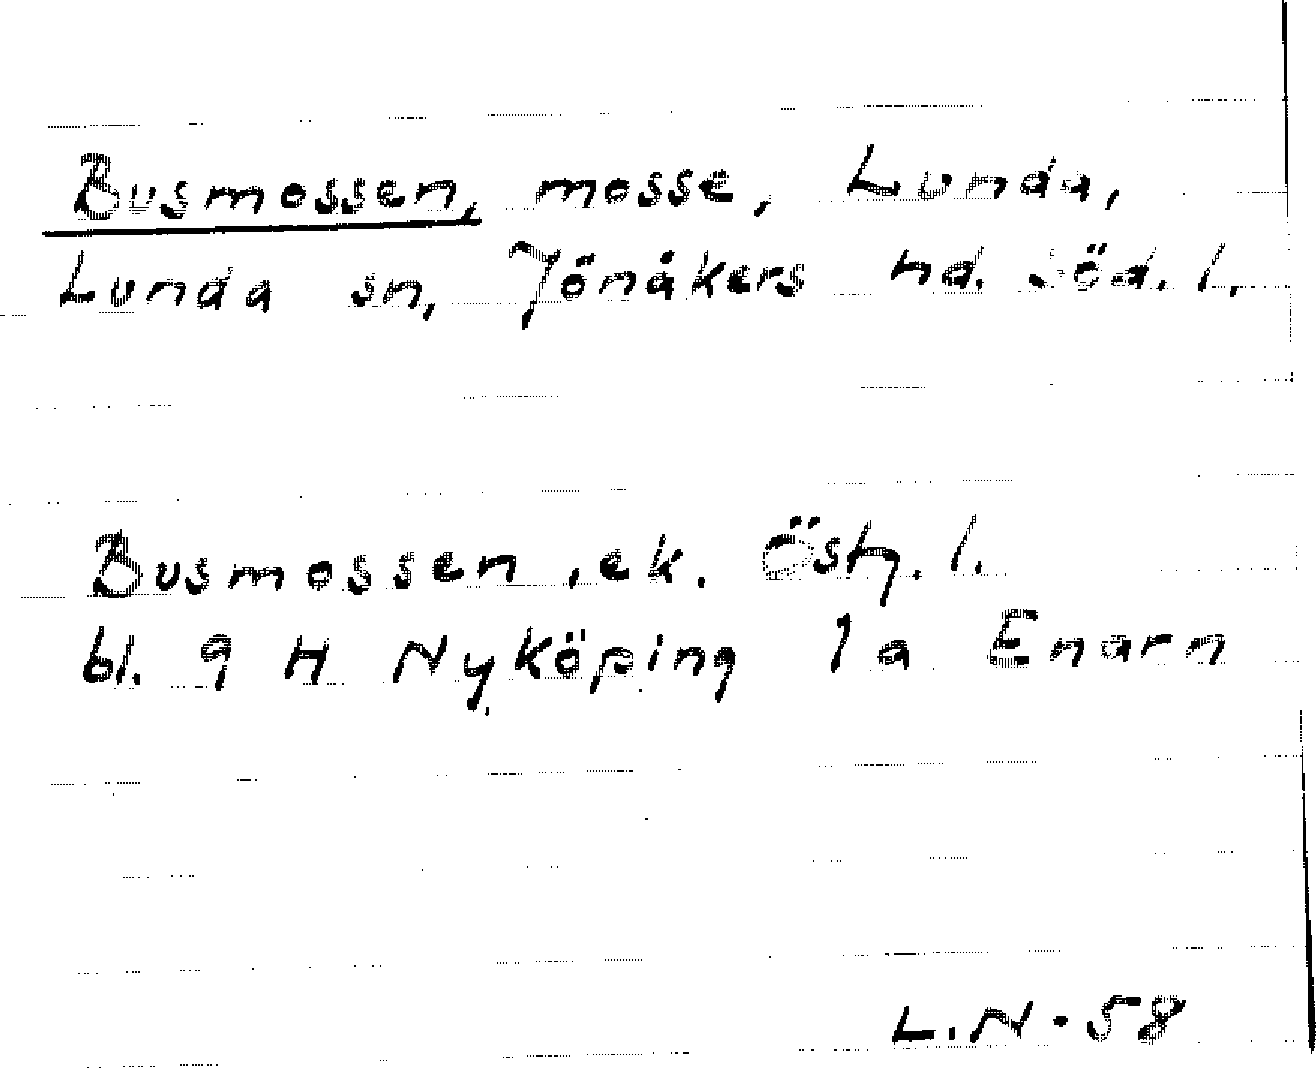 Busmossen, mosse, Lunda,
Lunda sn, Jönåkers hd. Söd. l.
Busmossen, ek. Östg. l.
bl. 9 H Nyköping 1a Enarn
L.N. 58